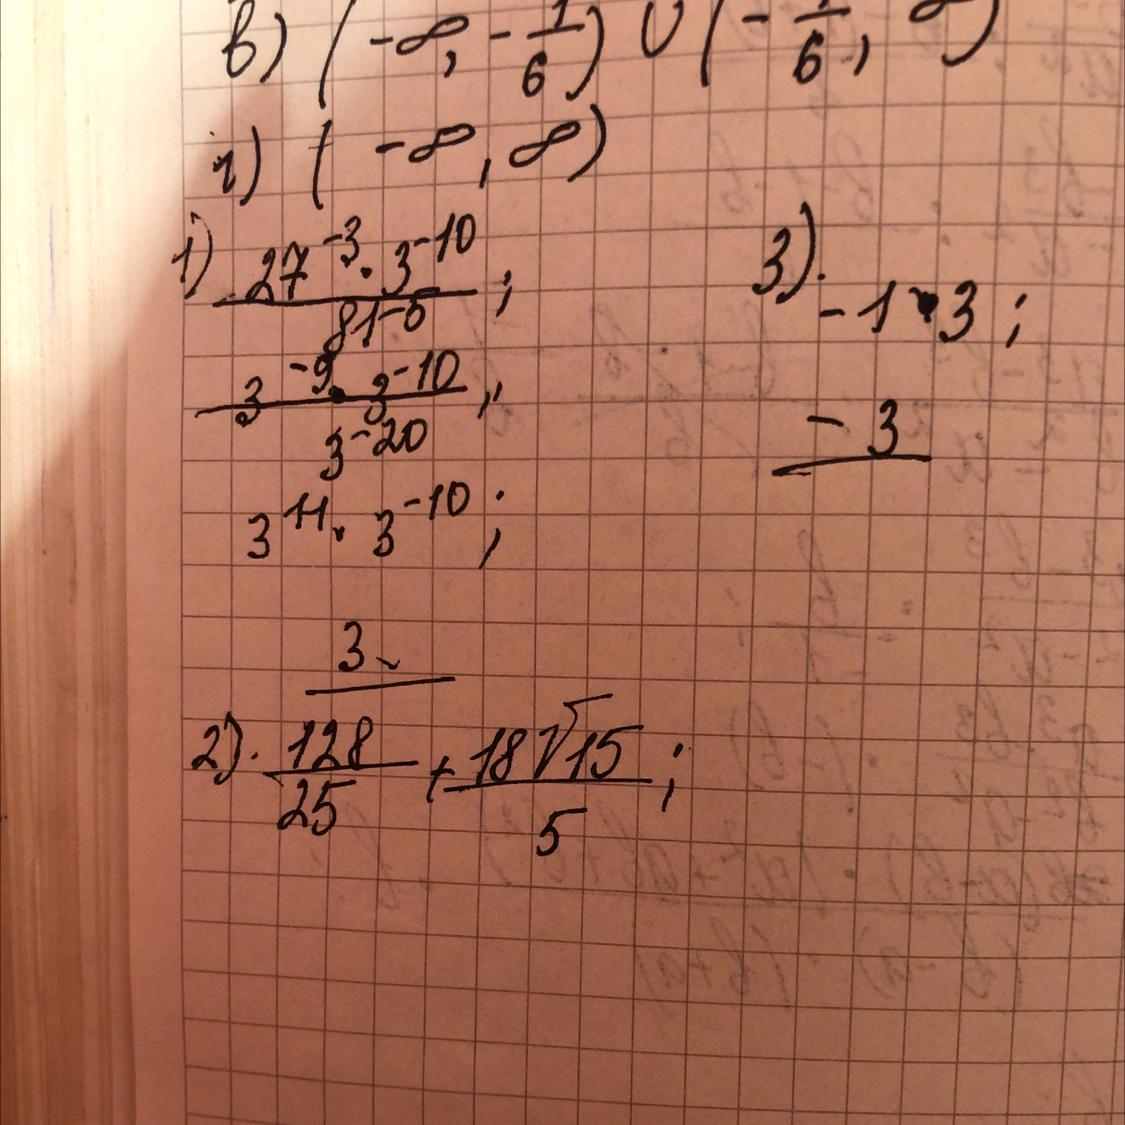 в) (-∞, -1/6) ∪ (-1/6, ∞)
г) (-∞, ∞)
1) 27^-3 · 3^-10 / 81^-5 ;
3^-9 · 3^-10 / 3^-20 ;
3^11 · 3^-10 ;
3
2). 128/25 + 18√15/5 ;
3). -1 · 3 ;
- 3